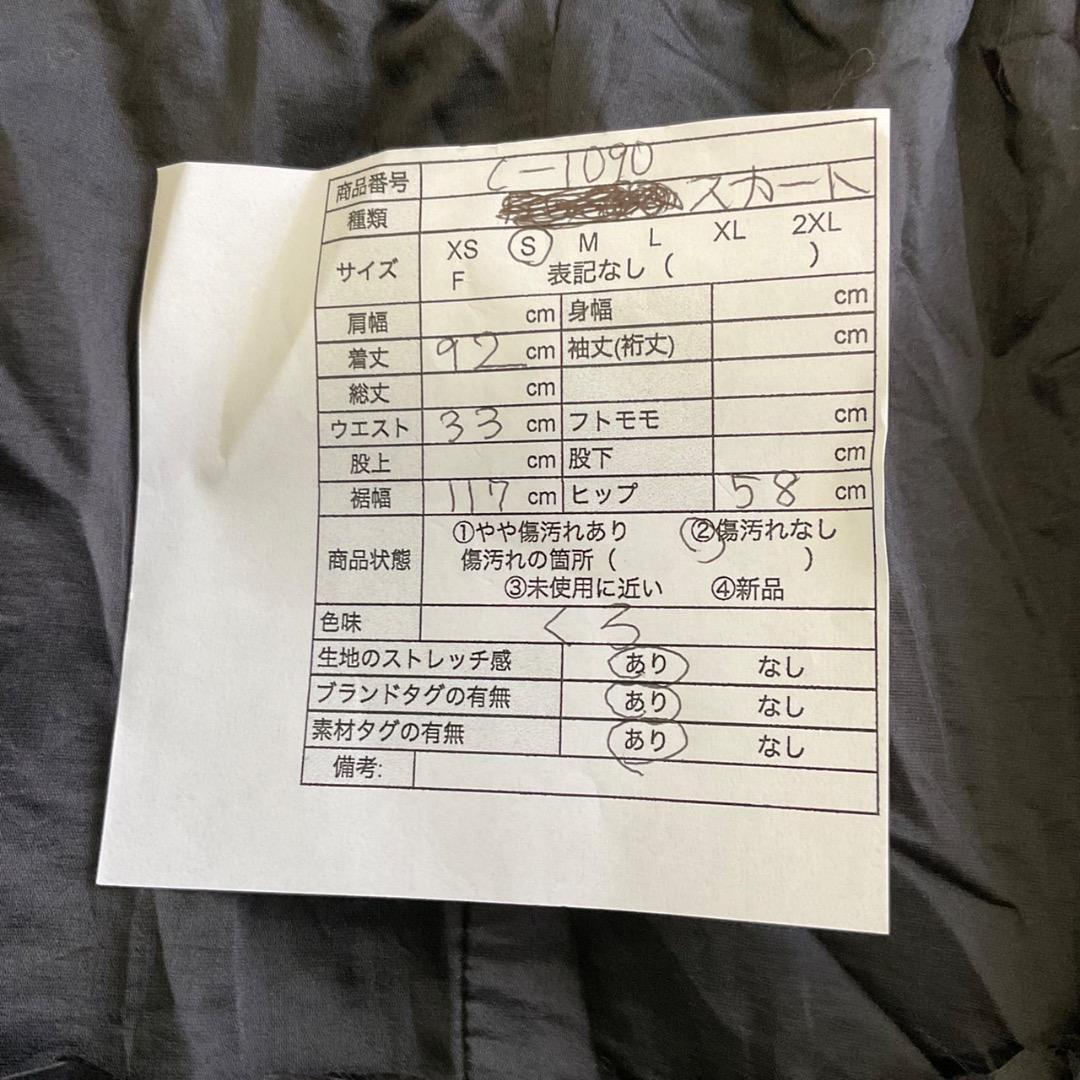 商品番号 C-1090
種類 スカート
サイズ XS S M L XL 2XL
F 表記なし ( )
肩幅 cm 身幅 cm
着丈 92 cm 袖丈(裄丈) cm
総丈 cm
ウエスト 33 cm フトモモ cm
股上 cm 股下 cm
裾幅 117 cm ヒップ 58 cm
商品状態 ①やや傷汚れあり ②傷汚れなし
傷汚れの箇所 ( )
③未使用に近い ④新品
色味 くろ
生地のストレッチ感 あり なし
ブランドタグの有無 あり なし
素材タグの有無 あり なし
備考: